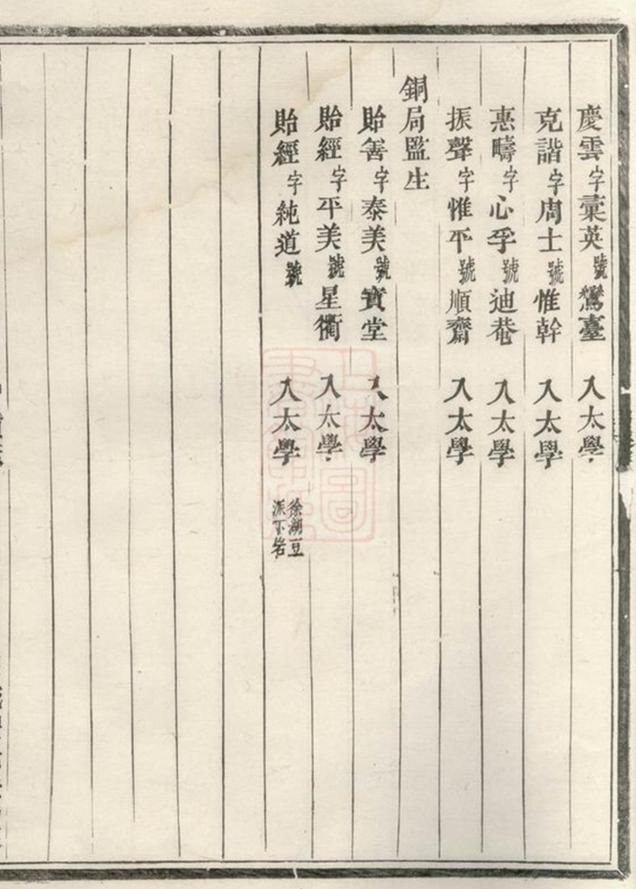 慶雲字彙英號鸞臺 入太學
克諧字周士號惟幹 入太學
惠疇字心孚號迪菴 入太學
振聲字惟平號順齋 入太學
銅局監生
貽善字泰美號寶堂 入太學
貽經字平美號星衢 入太學
貽經字純道號 入太學 徐湖豆
派下名